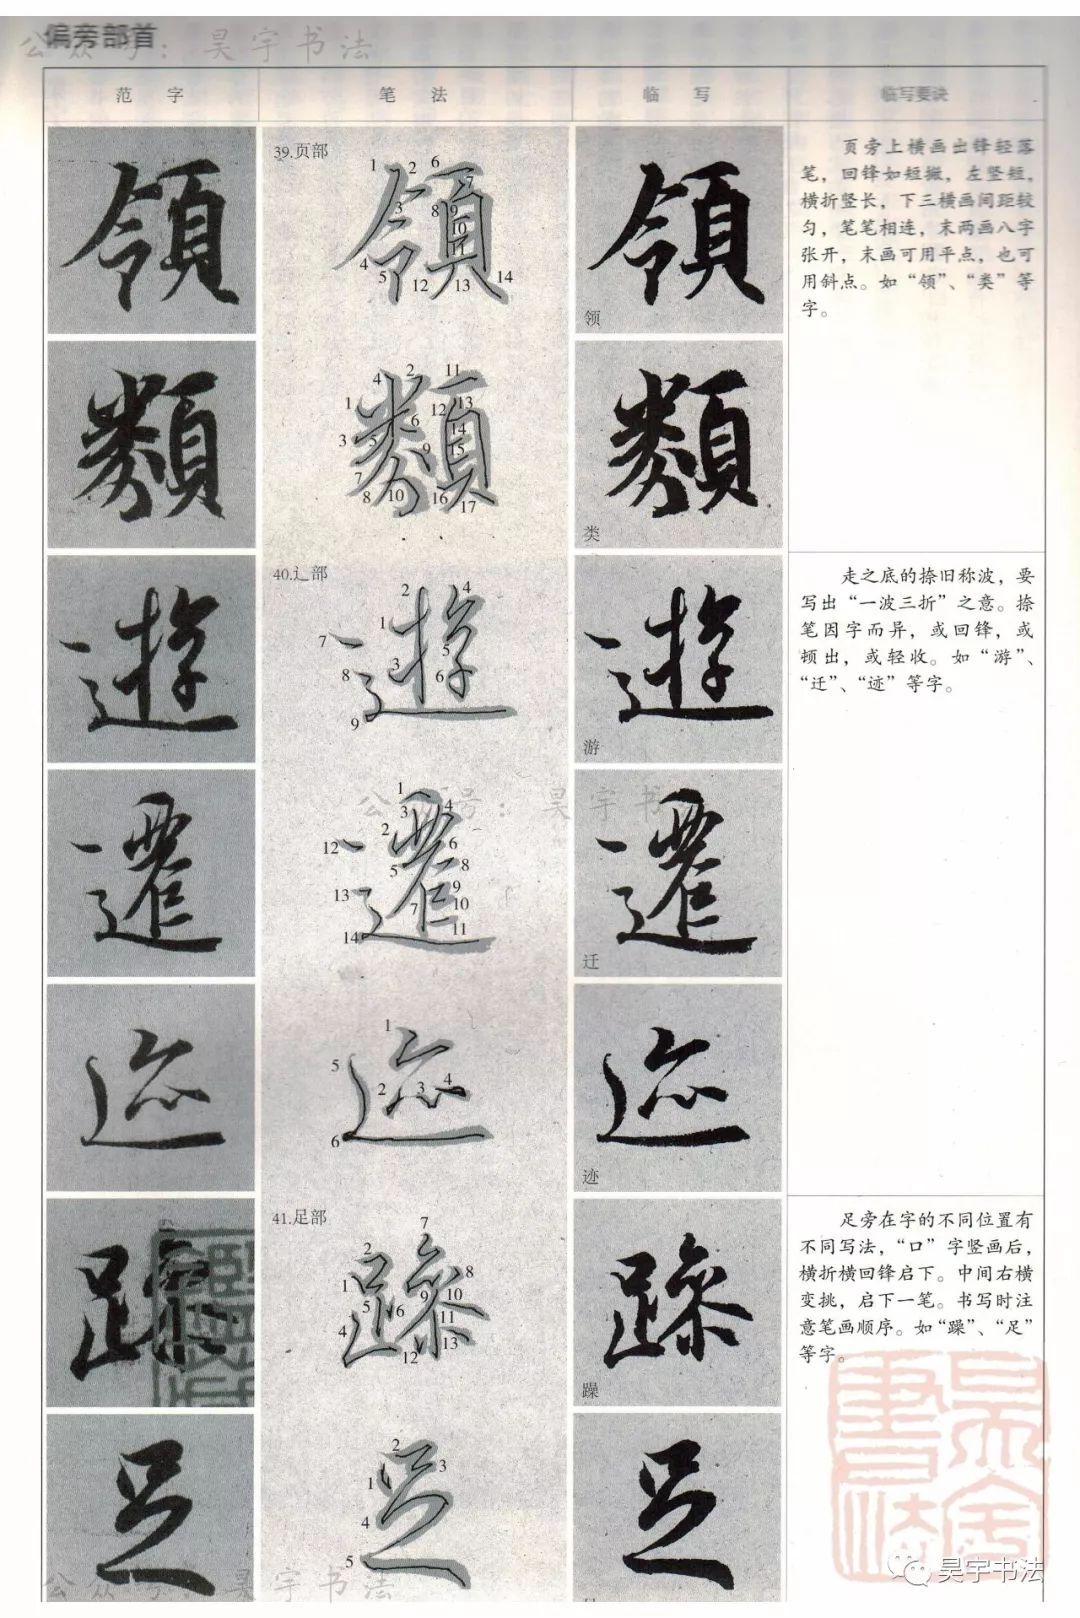 偏旁部首
公众号：昊宇书法
范 字 笔 法 临 写 临写要诀
39.页部
領
1 2 6 7 3 8 9 10 11 4 5 12 13 14
領
领
页旁上横画出锋轻落
笔，回锋如短撇，左竖短，
横折竖长，下三横画间距较
匀，笔笔相连，末两画八字
张开，末画可用平点，也可
用斜点。如“领”、“类”等
字。
類
4 2 11 1 6 12 13 3 5 14 9 15 7 8 10 16 17
類
类
40.辶部
遊
2 4 1 7 5 8 3 6 9
遊
游
走之底的捺旧称波，要
写出“一波三折”之意。捺
笔因字而异，或回锋，或
顿出，或轻收。如“游”、
“迁”、“迹”等字。
公众号：昊宇书
遷
1 3 4 2 12 6 5 8 13 9 7 10 14 11
遷
迁
迹
1 5 2 3 4 6
迹
迹
41.足部
躁
7 2 1 8 5 6 9 10 4 11 12 13
躁
躁
足旁在字的不同位置有
不同写法，“口”字竖画后，
横折横回锋启下。中间右横
变挑，启下一笔。书写时注
意笔画顺序。如“躁”、“足”
等字。
足
2 3 1 4 5
足
公众号：昊宇书法
昊宇书法
昊宇书法